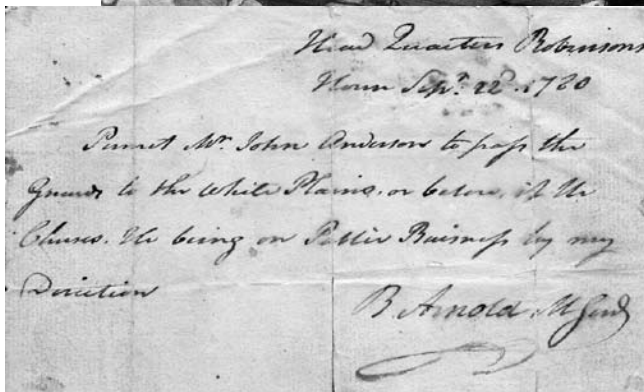 Head Quarters Robinsons
House Sepr. 22d. 1780
Permit Mr. John Anderson to pass the
Guards to the White Plains, or below, if He
Chuses. He being on Public Business by my
Direction
B. Arnold M Genl